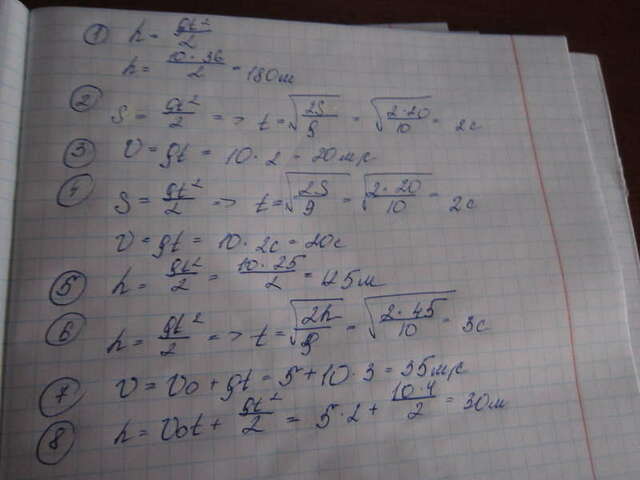 ① h = gt²/2
h = 10·36/2 = 180м
② S = gt²/2 => t = √(2S/g) = √(2·20/10) = 2с
③ v = gt = 10·2 = 20м/с
④ S = gt²/2 => t = √(2S/g) = √(2·20/10) = 2с
v = gt = 10·2с = 20с
⑤ h = gt²/2 = 10·25/2 = 125м
⑥ h = gt²/2 => t = √(2h/g) = √(2·45/10) = 3с
⑦ v = v₀ + gt = 5 + 10·3 = 35м/с
⑧ h = v₀t + gt²/2 = 5·2 + 10·4/2 = 30м